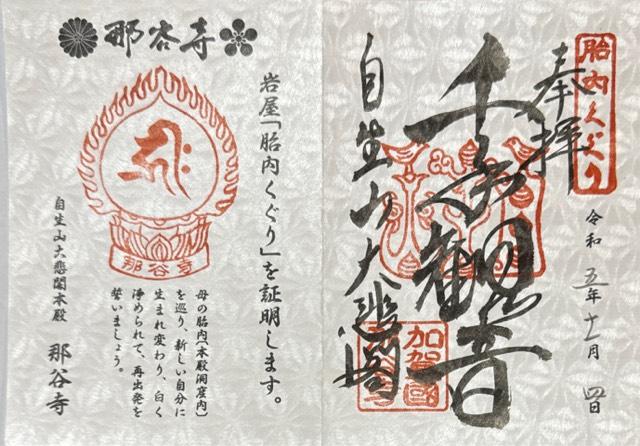 胎内くぐり
奉拝
令和五年十一月四日
千手観音
自生山大悲閣
加賀國
那谷寺
岩屋「胎内くぐり」を証明します。
那谷寺
母の胎内(本殿洞窟内)
を巡り、新しい自分に
生まれ変わり、白く
浄められて、再出発を
誓いましょう。
自生山大悲閣本殿 那谷寺